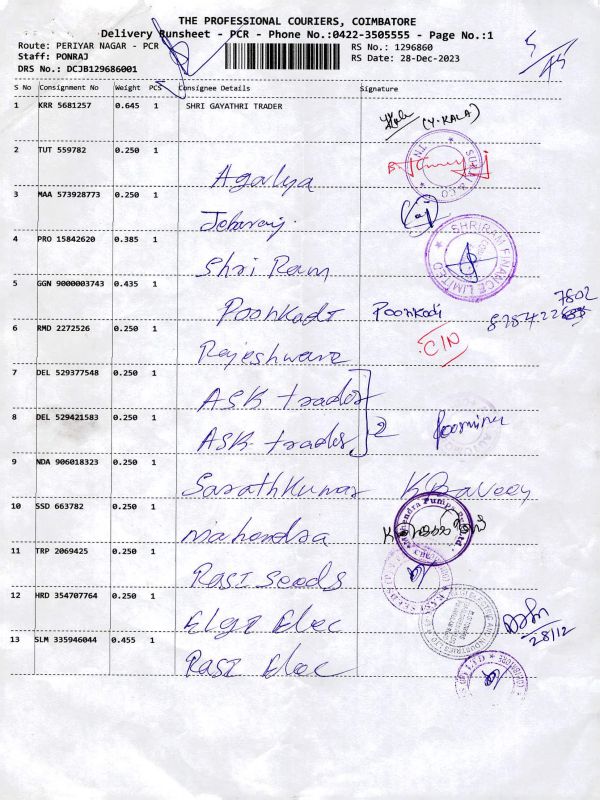 THE PROFESSIONAL COURIERS, COIMBATORE
Delivery Runsheet - PCR - Phone No.:0422-3505555 - Page No.:1
Route: PERIYAR NAGAR - PCR
RS No.: 1296860
Staff: PONRAJ
RS Date: 28-Dec-2023
DRS No.: DCJB129686001
S No Consignment No Weight PCS Consignee Details Signature
1 KRR 5681257 0.645 1 SHRI GAYATHRI TRADER
(Y.KALA)
2 TUT 559782 0.250 1 Agalya
3 MAA 573928773 0.250 1 Jebaraj.
4 PRO 15842620 0.385 1 Shri Ram
SHRIRAM FINANCE LIMITED
5 GGN 9000003743 0.435 1 Poonkadi Poonkodi
7802
6 RMD 2272526 0.250 1 Rajeshware
7 DEL 529377548 0.250 1 ASK trader
8 DEL 529421583 0.250 1 ASK trader 2
9 NDA 906018323 0.250 1 Sarathkumar
10 SSD 663782 0.250 1 Mahendra
11 TRP 2069425 0.250 1 Rasi Seeds
12 HRD 354707764 0.250 1 Elgi Elec
28/12
13 SLM 335946044 0.455 1 Rasi Elec